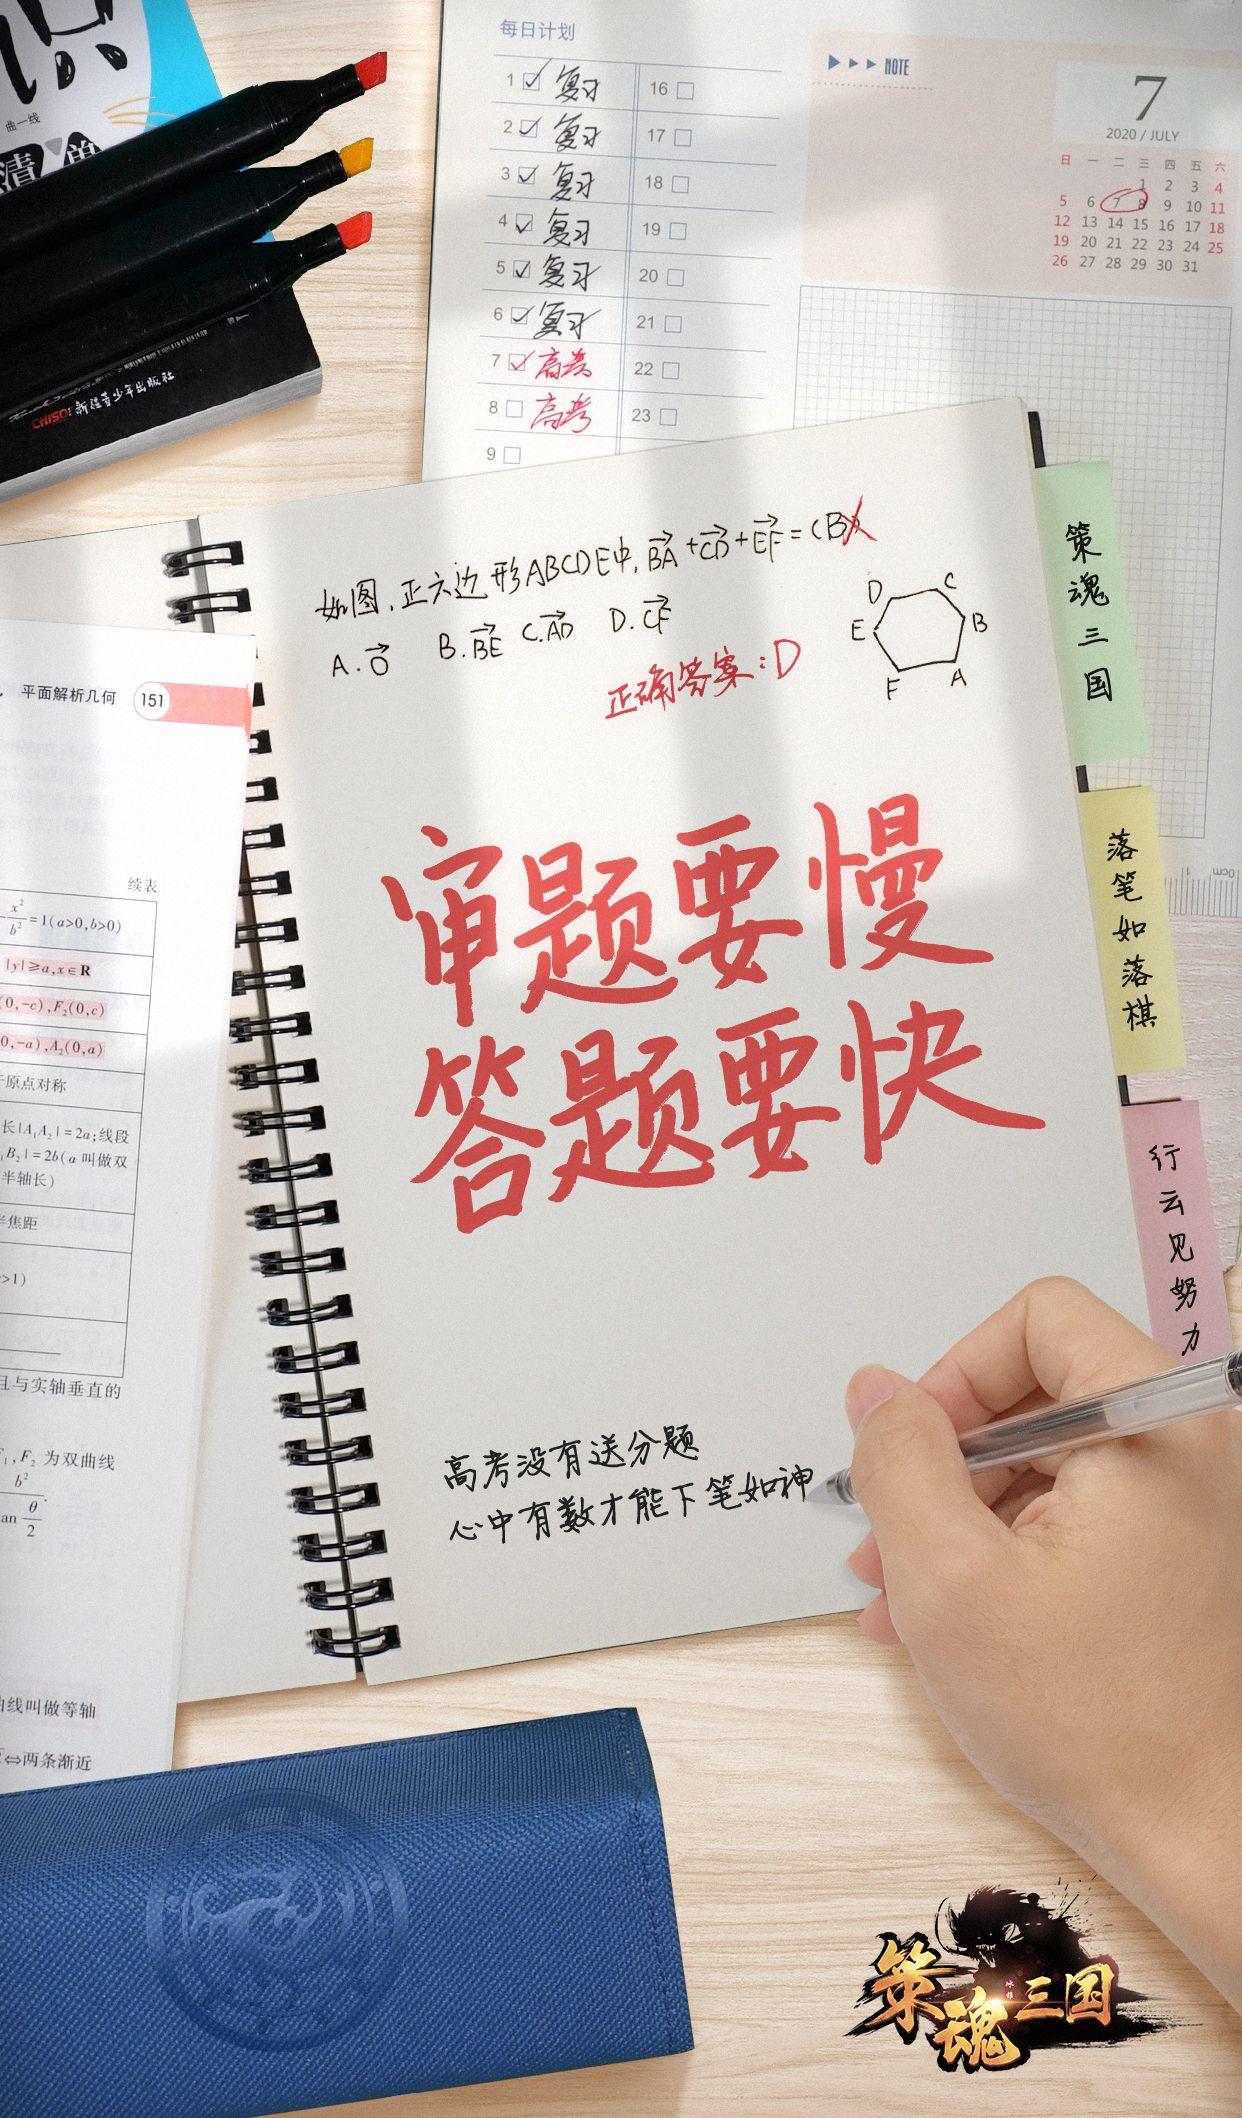 每日计划
1 复习
2 复习
3 复习
4 复习
5 复习
6 复习
7 高考
8 高考
9
16
17
18
19
20
21
22
23
NOTE
7
2020 / JULY
日 一 二 三 四 五 六
1 2 3 4
5 6 7 8 9 10 11
12 13 14 15 16 17 18
19 20 21 22 23 24 25
26 27 28 29 30 31
曲一线
清单
CHISO 新疆青少年出版社
如图,正六边形ABCDE中,BA+CD+EF=(B)
A.0 B.BE C.AD D.CF
正确答案:D
D C
E B
F A
平面解析几何 151
续表
x²/b²=1(a>0,b>0)
|y|≥a,x∈R
(0,-c),F₂(0,c)
0,-a),A₂(0,a)
原点对称
长|A₁A₂|=2a;线段
B₂|=2b(a叫做双
半轴长)
焦距
>1)
且与实轴垂直的
F₁,F₂为双曲线
b²
an θ/2
线叫做等轴
⇔两条渐近
审题要慢
答题要快
高考没有送分题
心中有数才能下笔如神
策魂三国
落笔如落棋
行云见努力
0cm 1
策魂三国